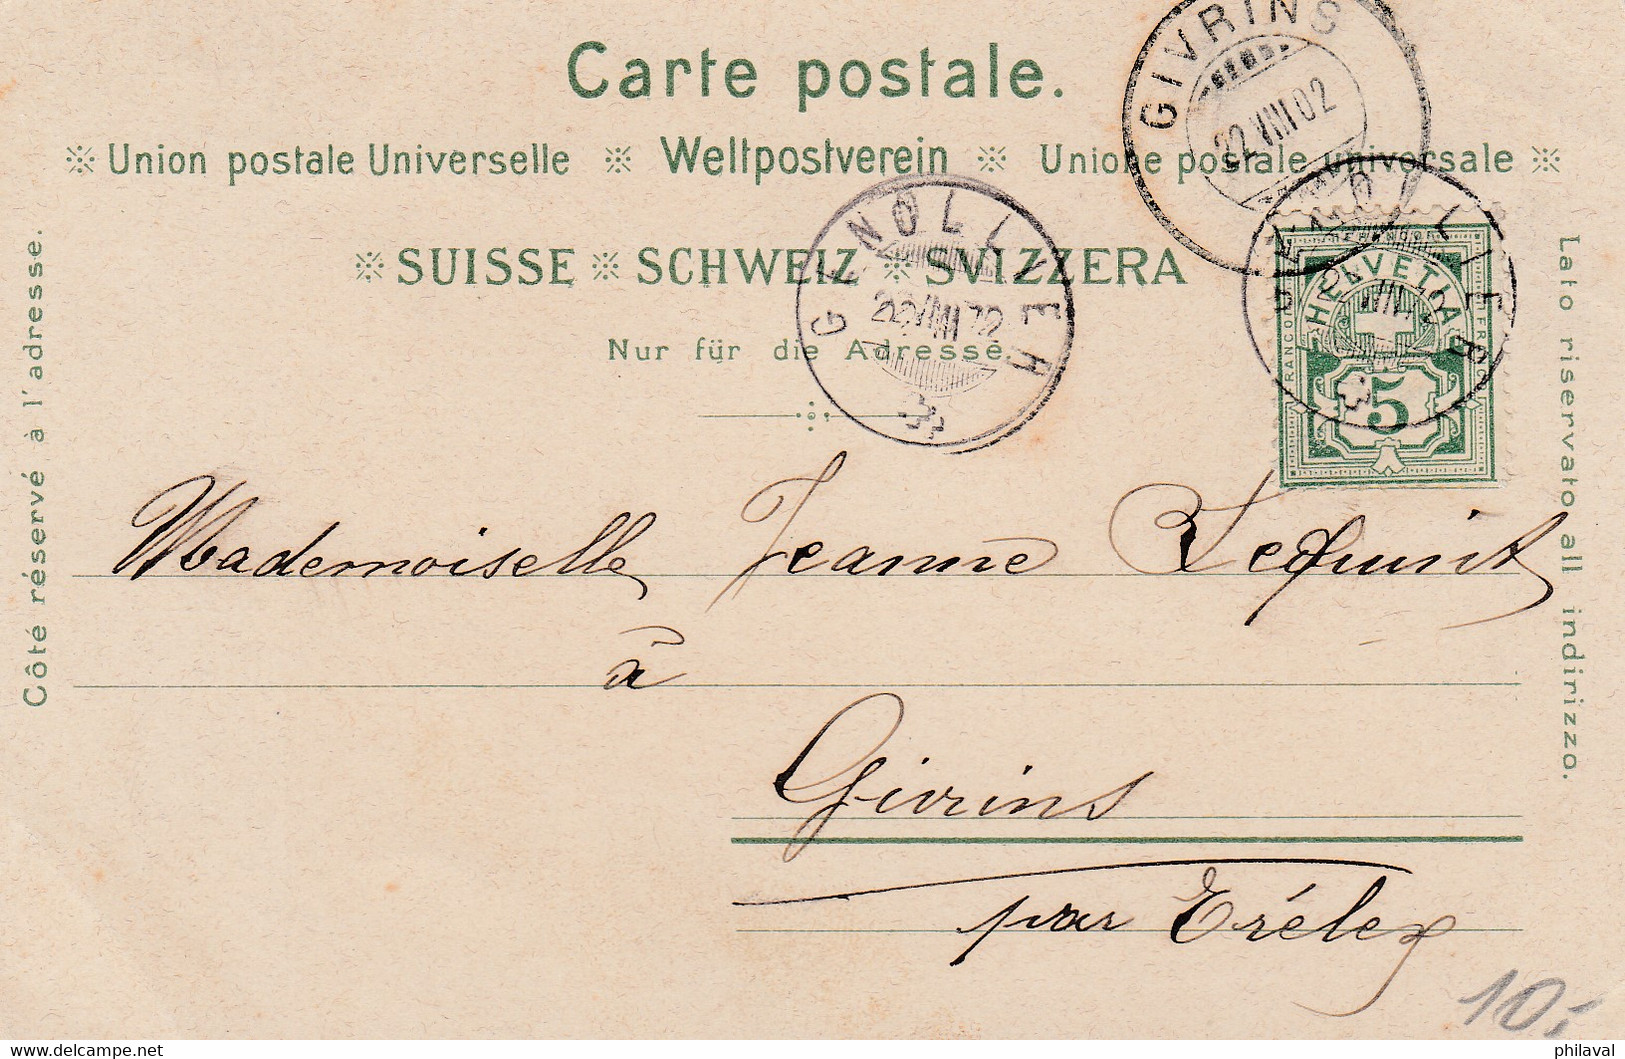 Carte postale.
※ Union postale Universelle ※ Weltpostverein ※ Unione postale universale ※
※ SUISSE ※ SCHWEIZ ※ SVIZZERA
Nur für die Adresse
Côté réservé à l'adresse.
Lato riservato all indirizzo.
GIVRINS
22 VIII 02
GINOLLIER
22 VIII 02
GINOLLIER
HELVETIA
FRANCO
FRANCO
5
Mademoiselle Jeanne
à
Givrins
par Trélex
10.-
philaval